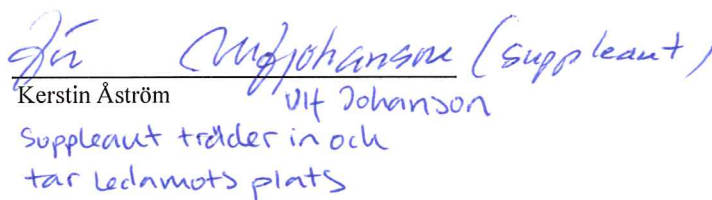 för Ulf Johanson (suppleant)
Kerstin Åström Ulf Johanson
Suppleant träder in och
tar ledamots plats